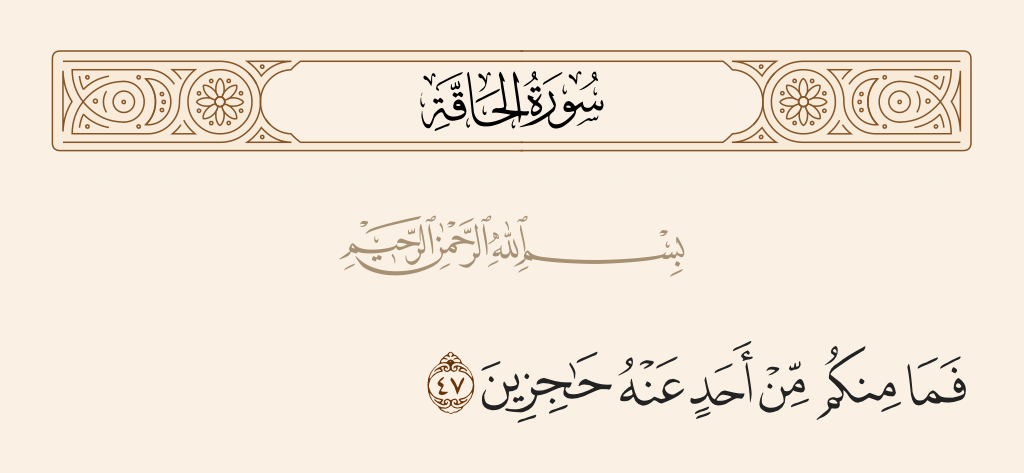 سُورَةُ الحَاقَّةِ
بِسْمِ ٱللَّهِ ٱلرَّحْمَٰنِ ٱلرَّحِيمِ
فَمَا مِنكُم مِّنْ أَحَدٍ عَنْهُ حَٰجِزِينَ ٤٧